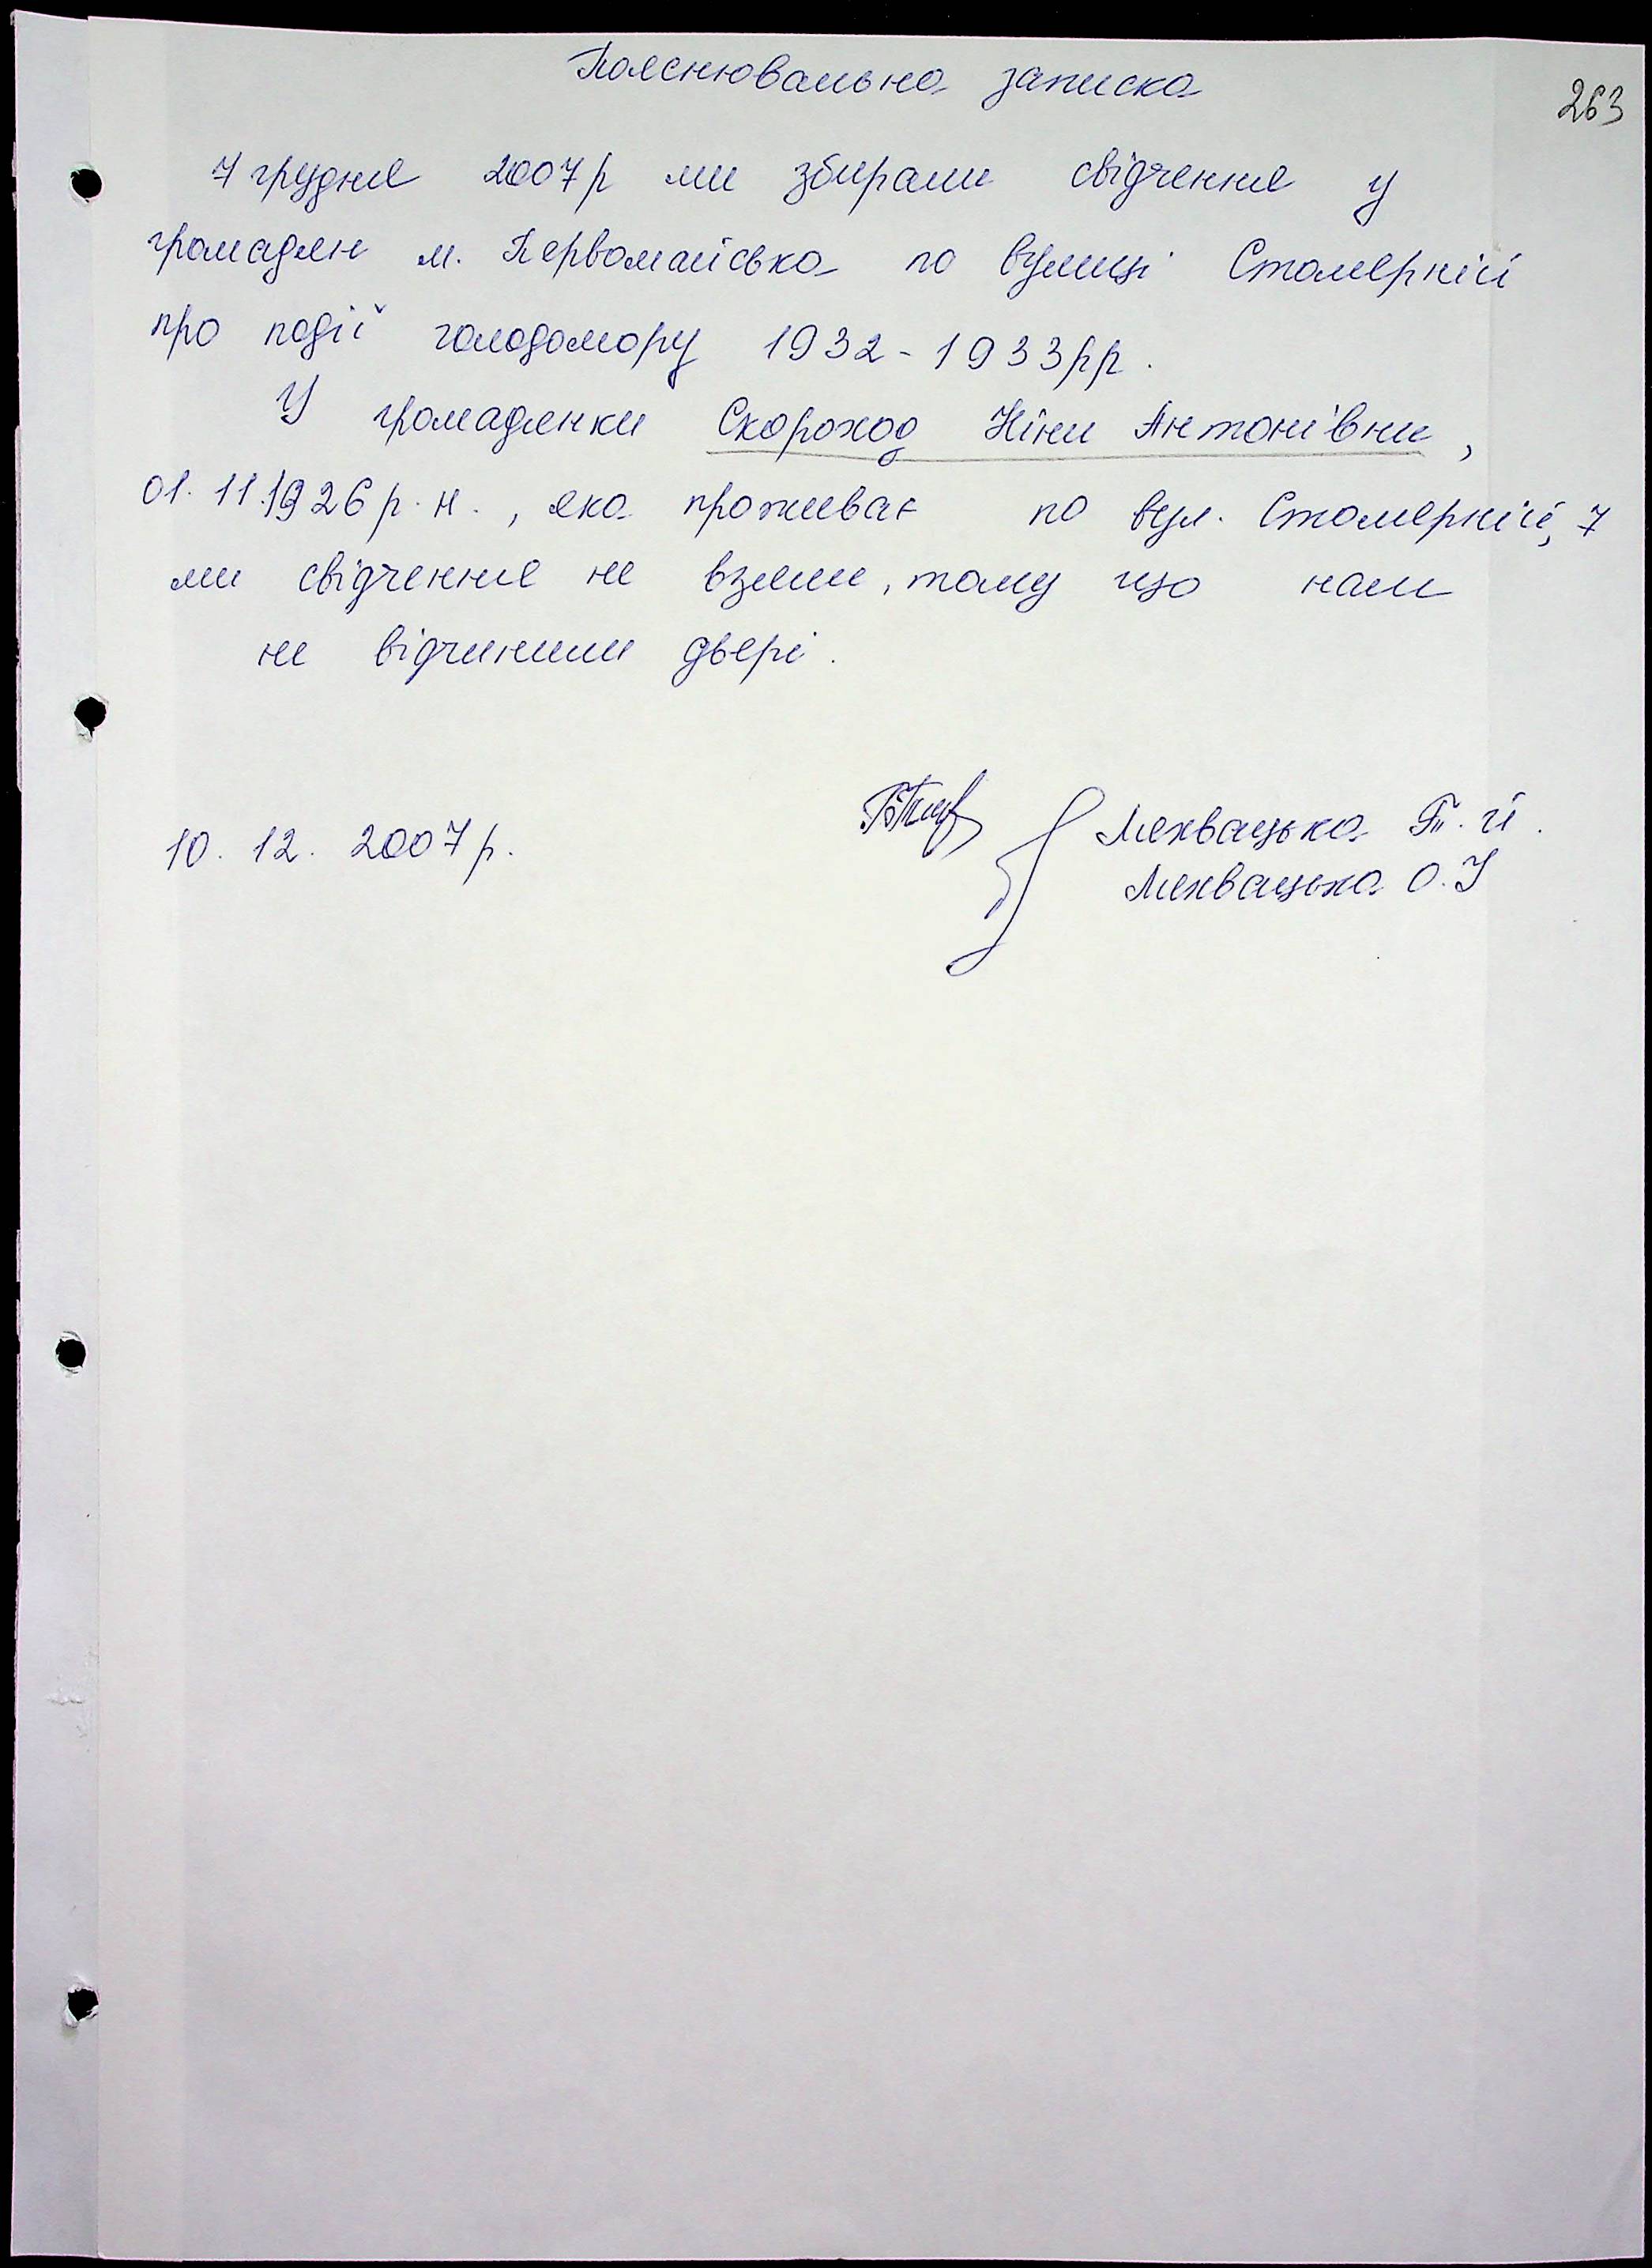 Пояснювальна записка
263
7 грудня 2007р ми збирали свідчення у
громадян м. Первомайська по вулиці Столярній
про події голодомору 1932-1933рр.
У громадянки Скороход Ніни Антонівни,
01.11.1926р.н., яка проживає по вул. Столярній, 7
ми свідчення не взяли, тому що нам
не відчинили двері.
10.12.2007р. Лехвацька Т.Й.
Лехвацька О.І